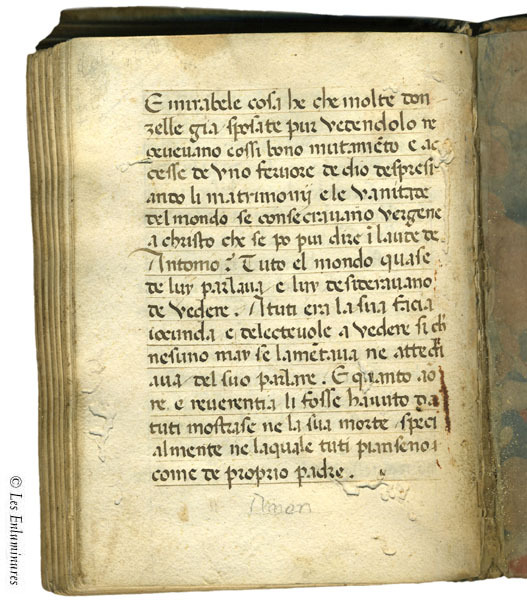 E mirabele cosa he che molte don
zelle gia sposate pur vedendolo re
cevevano cossi bono mutamēto e ac
cesse de vno fervore de dio despresi
ando li matrimonij e le vanitade
del mondo se consecravano vergene
a christo che se po pui dire ī laude de
Antonio? Tuto el mondo quase
de luy parlaua e luy desideravano
de vedere. A tuti era la sua facia
iocunda e delectevole a vedere si ch
nesuno may se lamētaua ne attedi
aua del suo parlare. E quanto ao
re. e reuerentia li fosse hauuto da
tuti mostrase ne la sua morte speci
almente ne laquale tuti pianseno
come de proprio padre.
Amen
© Les Enluminures